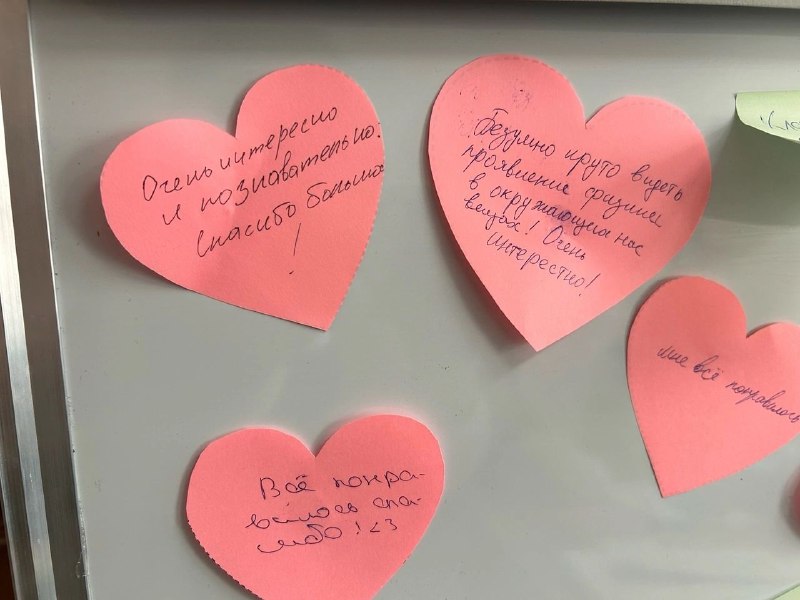 Очень интересно
и познавательно.
Спасибо большое
!
Безумно круто видеть
проявление физики
в окружающих нас
вещах! Очень
интерестно!
Мне всё понравилось
Всё понра-
вилось спа-
сибо! <3